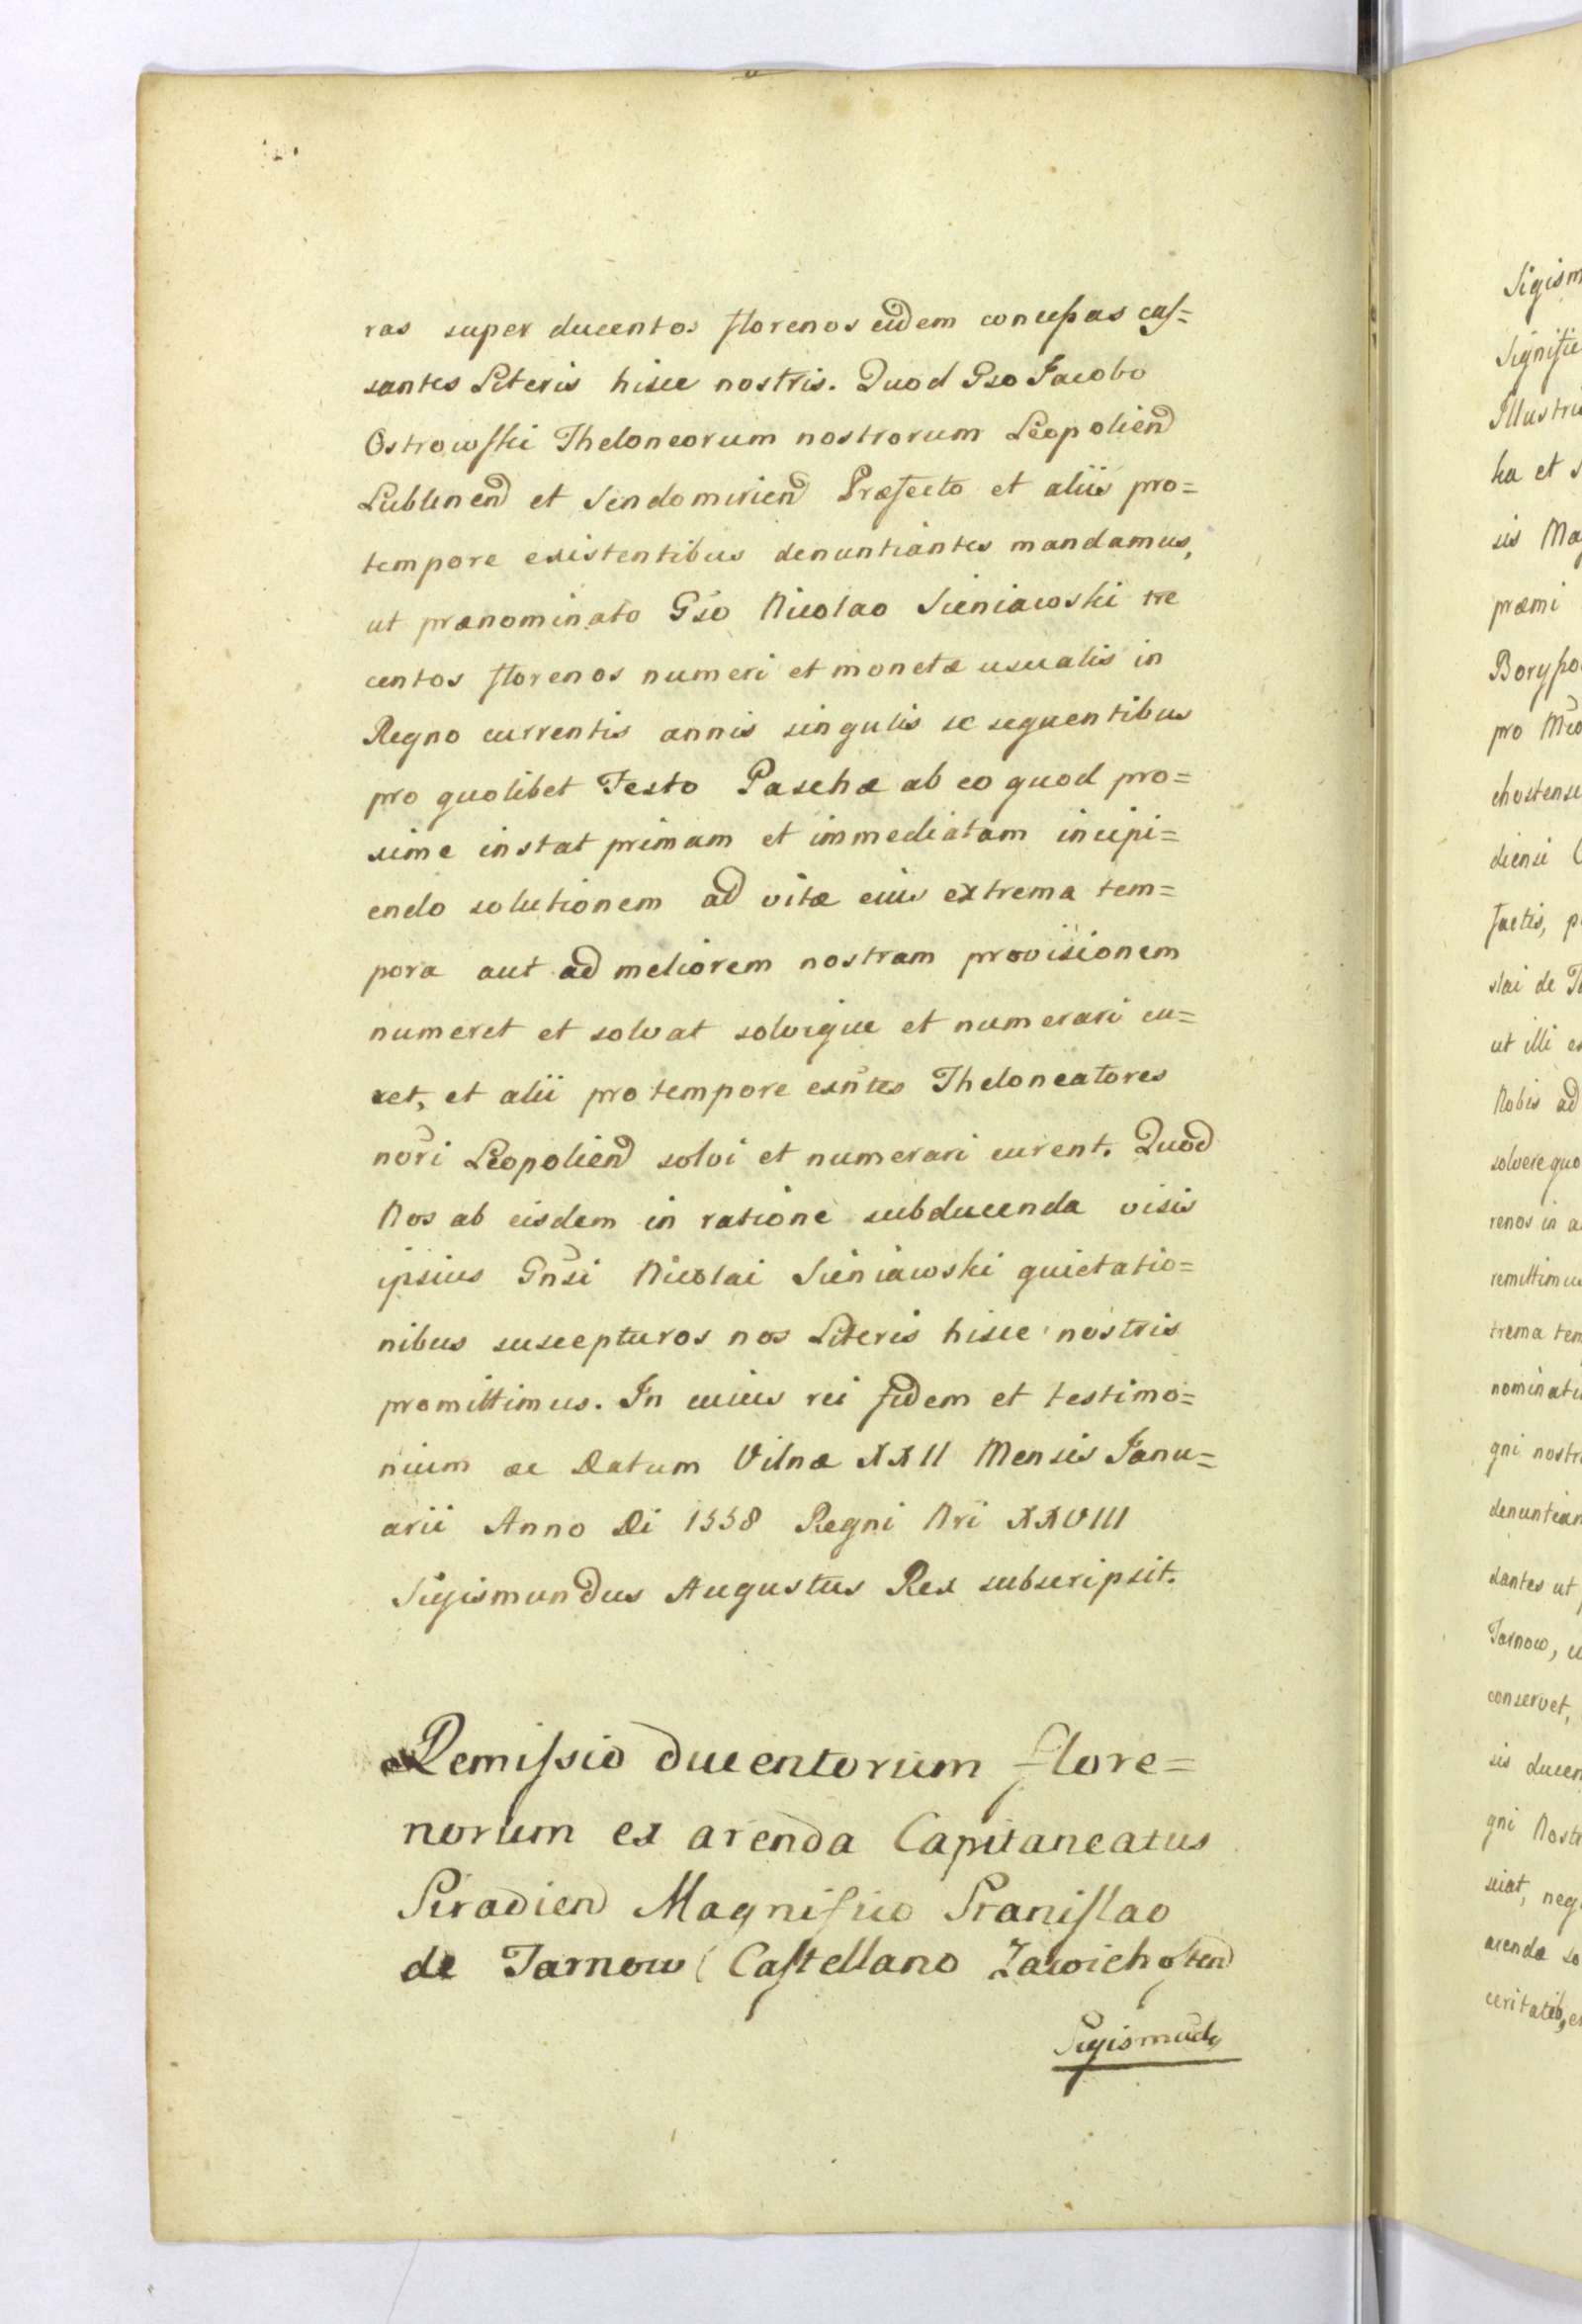 ras super ducentos florenos eidem concessas cas=
santes Literis hisce nostris. Quod Gso Jacobo
Ostrowski Theloneorum nostrorum Leopolien
Lublinen et Sendomirien Præfecto et aliis pro=
tempore existentibus denuntiantes mandamus,
ut prænominato Gso Nicolao Sieniawski tre
centos florenos numeri et monetæ usualis in
Regno currentis annis singulis se sequentibus
pro quolibet Festo Paschæ ab eo quod pro=
xime instat primam et immediatam incipi=
endo solutionem ad vitæ eius extrema tem=
pora aut ad meliorem nostram provisionem
numeret et solvat solvique et numerari cu=
ret, et alii pro tempore exntes Theloneatores
nori Leopolien solvi et numerari curent. Quod
Nos ab eisdem in ratione subducenda visis
ipsius Gnsi Nicolai Sieniawski quietatio=
nibus suscepturos nos Literis hisce nostris
promittimus. In cuius rei fidem et testimo=
nium &c Datum Vilnæ XXII Mensis Janu=
arii Anno Di 1558 Regni Nri XXVIII
Sigismundus Augustus Rex subscripsit.
Remissio ducentorum flore=
norum ex arenda Capitaneatus
Siradien Magnifico Stanislao
de Tarnow Castellano Zawichosten
Sigismudg
Sigism
Signific
Illustri
ka et S
sis Mag
præmi
Borysso
pro Mco
chostense
diensi C
factis, p
slai de Ta
ut illi ex
Nobis ad
solvere quo
renos in a
remittimus
trema tem
nominati
gni nostri
denuntian
dantes ut
Tarnow, u
conservet,
sis ducen
gni Nostr
sciat, neq
arenda so
ceritatib, et